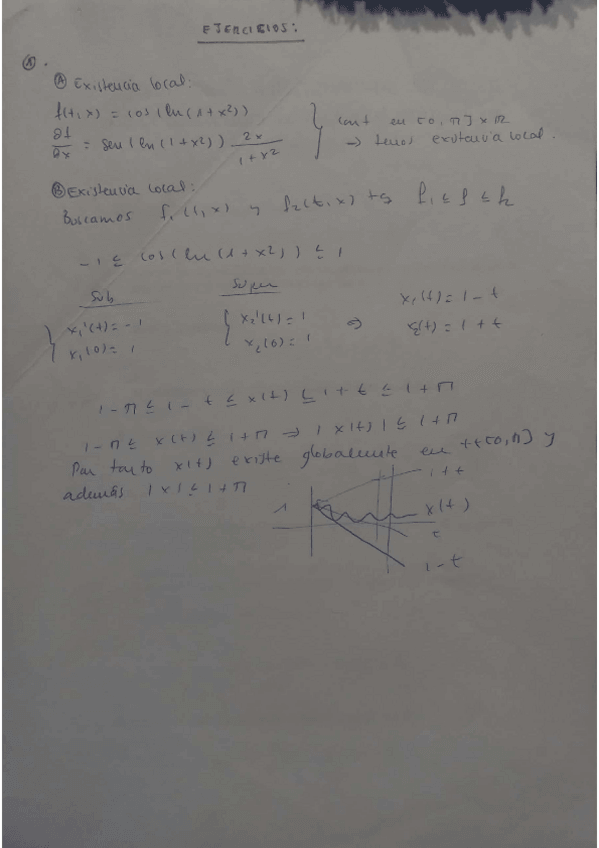 EJERCICIOS:
A Existencia local:
f(t,x) = cos(ln(1+x²))
∂f/∂x = sen(ln(1+x²)) 2x/1+x²
cont en [0,π]×ℝ
→ existencia local.
B Existencia local:
Buscamos f₁(t,x) y f₂(t,x) tq f₁ ≤ f ≤ f₂
-1 ≤ cos(ln(1+x²)) ≤ 1
Sub
Super
x₁'(t) = -1
x₁(0) = 1
x₂'(t) = 1
x₂(0) = 1
⇒
x₁(t) = 1 - t
x₂(t) = 1 + t
1-π ≤ 1-t ≤ x(t) ≤ 1+t ≤ 1+π
1-π ≤ x(t) ≤ 1+π ⇒ |x(t)| ≤ 1+π
Por tanto x(t) existe globalmente en t∈[0,π] y
además |x| ≤ 1+π
1+t
1
x(t)
t
1-t